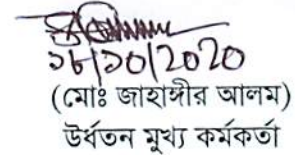 ১৮/১০/2020
(মোঃ জাহাঙ্গীর আলম)
উর্ধতন মুখ্য কর্মকর্তা